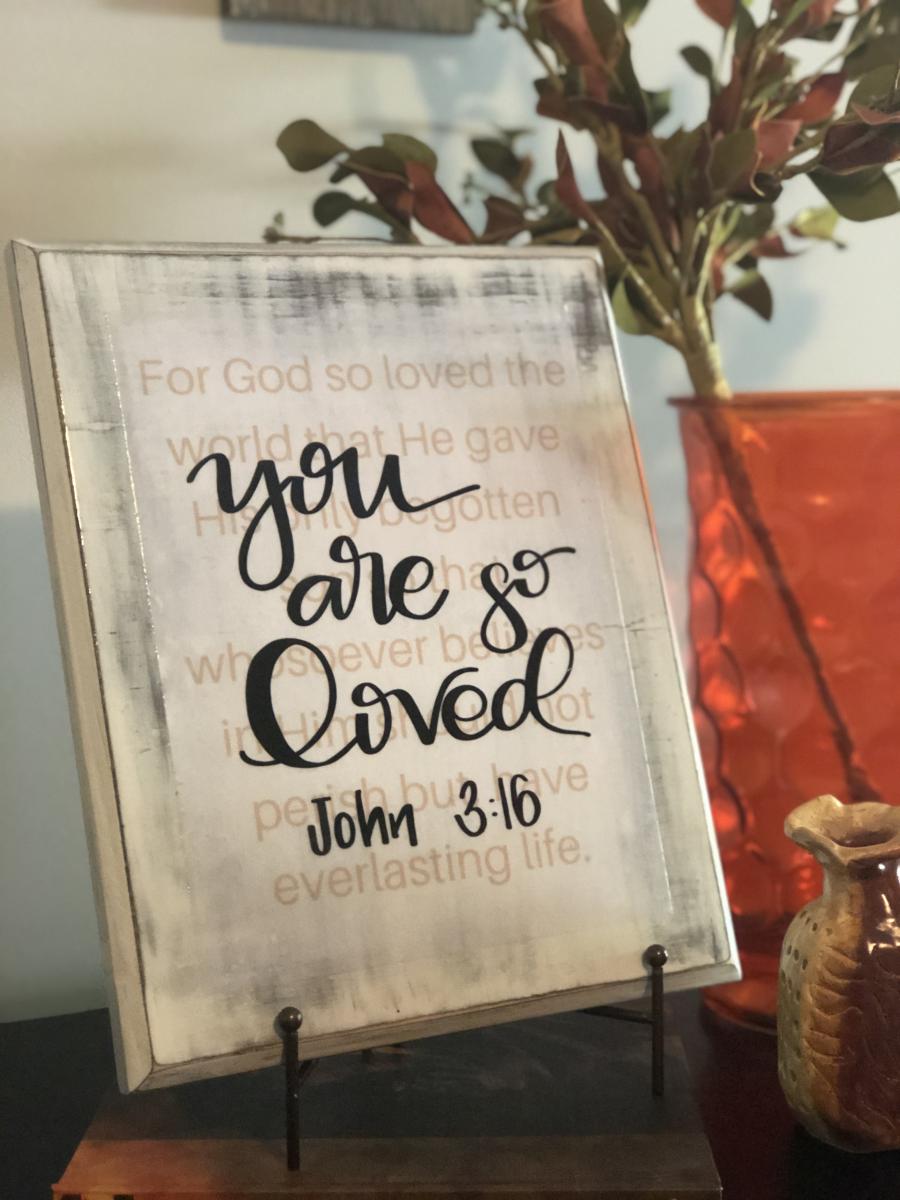 For God so loved the
world that He gave
His only begotten
son so that
whosoever believes
in Him should not
perish but have
everlasting life.
you
are so
loved
John 3:16